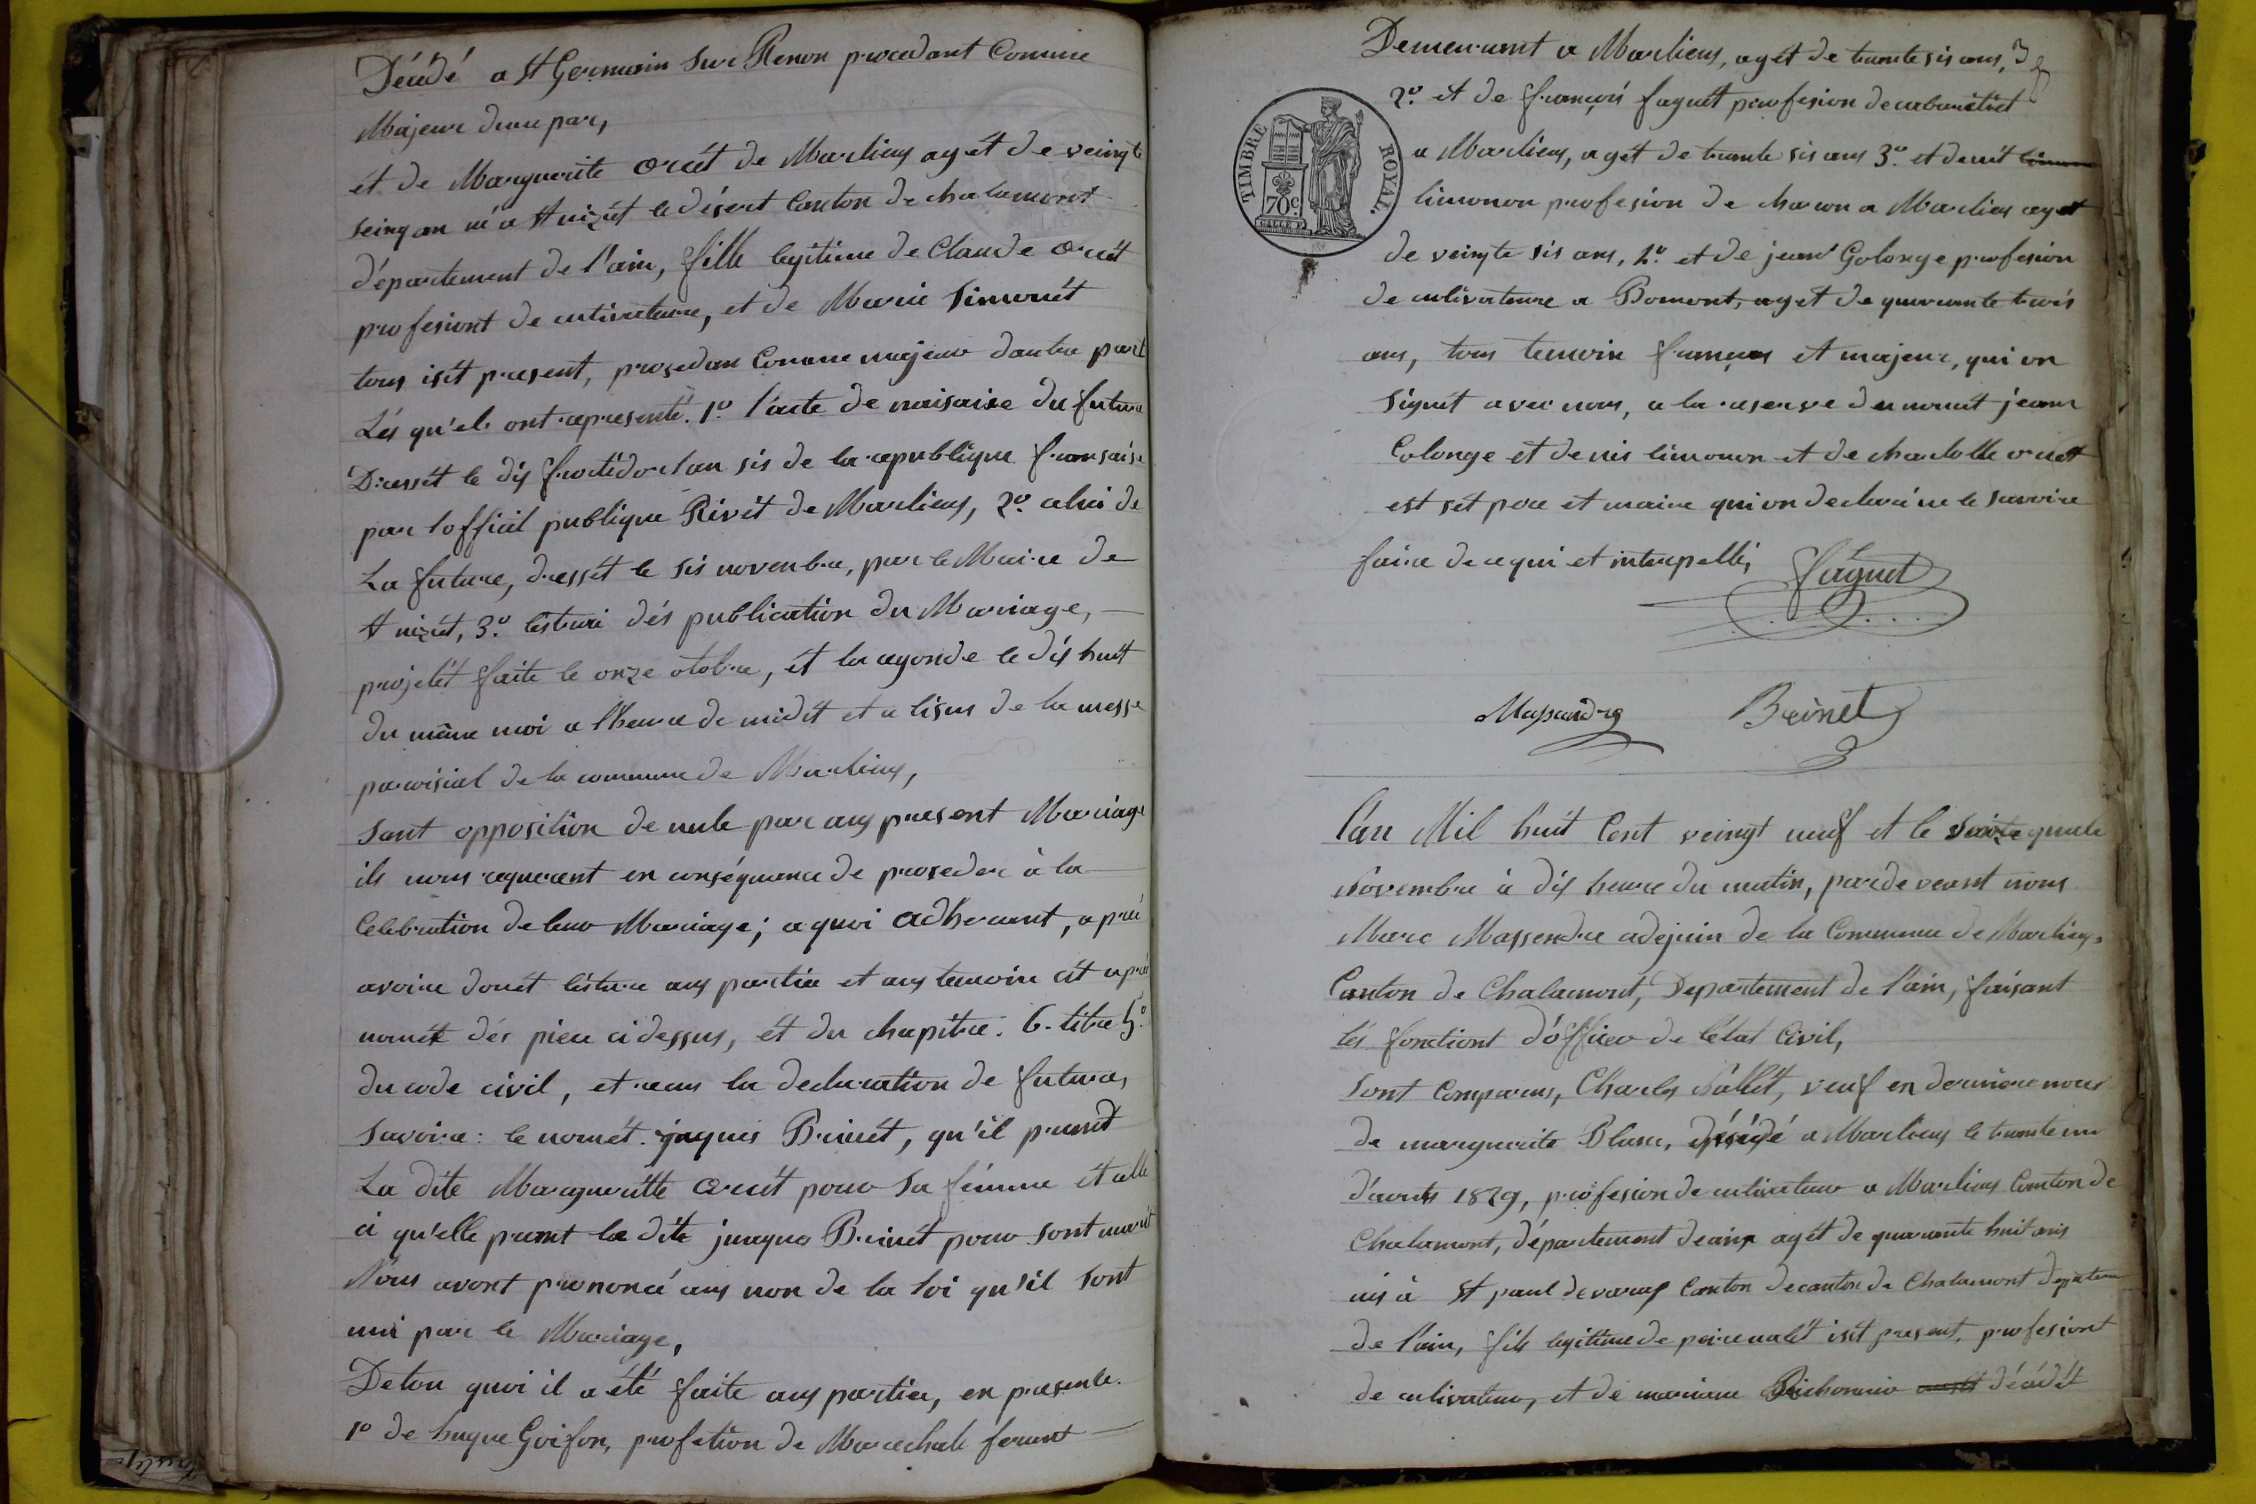 Décédé a St Germain sur Renon procedant Comme
Majeur dune par,
et de Marguerite Orcét de Marlieux agét de veingte
seing an né a St nizét le désert Canton de chalamont
département de l'ain, fille legitime de Claude Orcét
profesiont de cultivateure, et de Marie Simonét
tous isit present, prosedan Comme majeur dautre part
Lés qu'els ont representé. 1º l'acte de naisance du future
Dressét le dis fructidor lan sis de la republique fransaise
par lofficil publique Rivét de Marlieux, 2º celui de
La future, dressét le sis novembre, par le Maire de
St nizét, 3º. des publication du Mariage,
projetét faite le onze otobre, ét la segonde le dix huit
du même moi a l'heure de midét et a lisus de la messe
paroisial de la commune de Marlieux,
Sant opposition de nule par aux present Mariage
ils nous requerent en conséquence de proseder à la
Celebration de leur Mariage; a quoi adherant, apréé
avoire donét listure aux partie et aux temoin cit aprés
nomét dés piece ci dessus, ét du chapitre. 6. titre 5º.
du code civil, et recus la declaration de future,
Savoire: le nomét. jaques Brinét, qu'il prend
La dite Margueritte Orcét pour sa fémme ét celle
ci qu'elle prent le dite jacques Brinét pour sont marit
Nous avont prononcé aux non de la loi qu'sil sont
uni par le Mariage,
De tou quoi il a été faite aux partier, en presente.
1º de hugue Goifon, profetion de Marechale ferant
Demeurant a Marlieux, agét de trante sis ans,
2º. et de françois faguét profesion de cabarétiet
a Marlieux, agét de trante sis ans 3º. et denit
limonon profesion de charon a Marlieux agét
de veingte sis ans, 4º. et de jean Golonge profesion
de cultivateure a Romont, agét de quarante trois
ans, tous temoin françois et majeur, qui on
Signét avec nous, a la reserve du nomét jeam
Colonge et denis limonon et de charlotte orcét
est set pere et maire qui on declaré ne le savoire
faire de ce qui et interpellé,
faguet
Massandre Brinet
TIMBRE ROYAL.
70 c.
L'an Mil huit Cent veingt neuf et le quatre
Novembre à dix heure du matin, pardeveant nous
Marc Massendre adejoin de la Commune de Marlieux,
Canton de Chalamont, Departement de l'ain, faisant
lés fonctiont d'officer de l'état Civil,
Sont Comparus, Charles Nallét, veuf en derniere nous
de marguerite Blanc, désédé a Marlieux le trante un
d'aouts 1829, profesion de cultivateur a Marlieux Canton de
Chalamont, département deain agét de quarante huit ans
nis à St paul de varax Canton de canton de Chalamont departem
de l'ain, fils legitime de peire nalét isit present, profesiont
de cultivateur, et de mariane Richonnie décédét